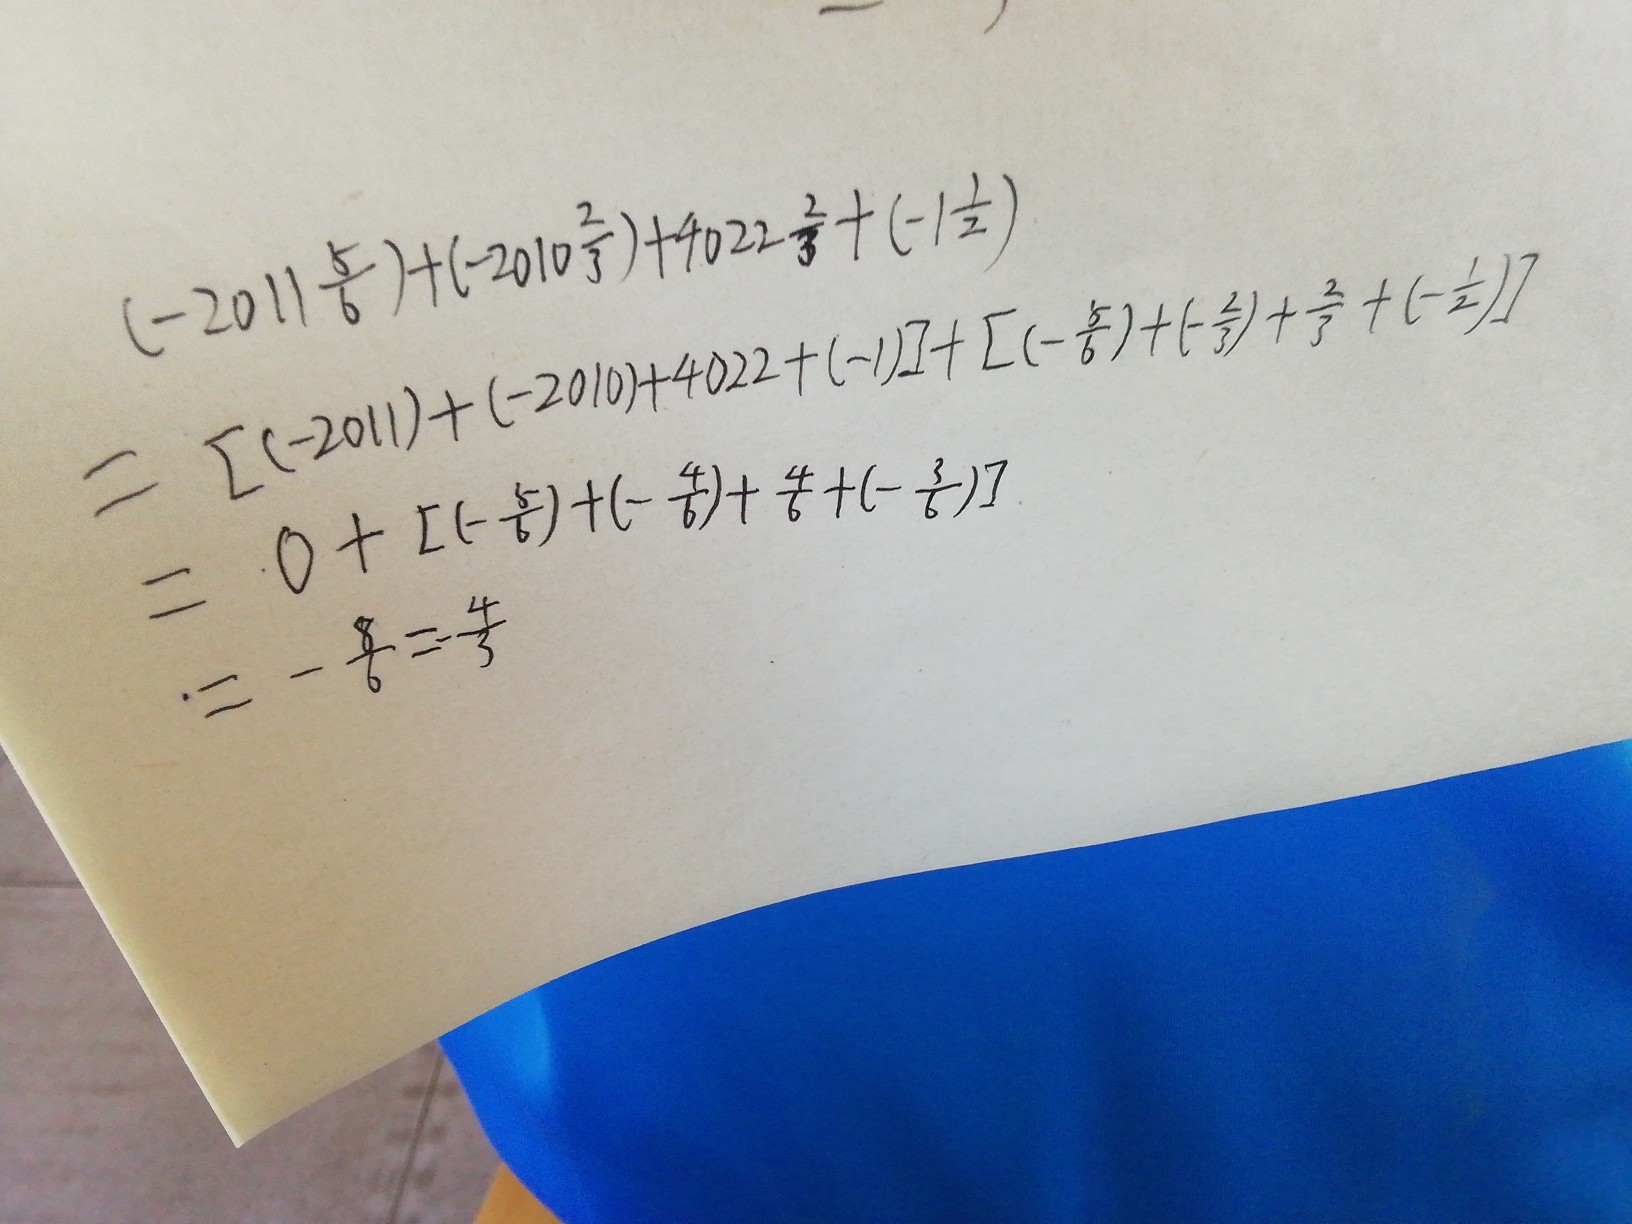 (-2011 5/6)+(-2010 2/3)+4022 2/3+(-1 1/2)
= [(-2011)+(-2010)+4022+(-1)]+[(-5/6)+(-2/3)+2/3+(-1/2)]
= 0+[(-5/6)+(-4/6)+4/6+(-3/6)]
= -8/6=-4/3